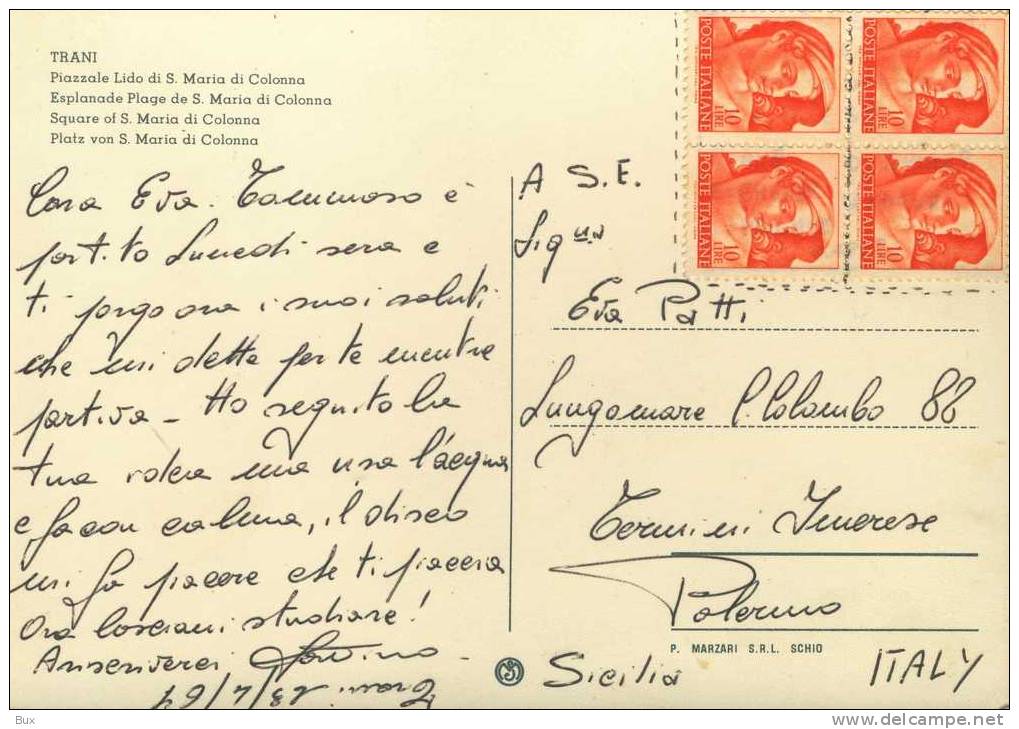 TRANI
Piazzale Lido di S. Maria di Colonna
Esplanade Plage de S. Maria di Colonna
Square of S. Maria di Colonna
Platz von S. Maria di Colonna
Cara Eva. Tommaso è
partito Lunedì sera e
ti porgo ora i suoi saluti
che mi dette per te mentre
partiva - Ho seguito la
tua rotta una usa l'acqua
e fa con calma, il disco
mi fa piacere che ti piaccia
Ora lasciami studiare!
Arriscriverci
Trani 23/4/64
POSTE ITALIANE
10 LIRE
POSTE ITALIANE
10 LIRE
POSTE ITALIANE
10 LIRE
POSTE ITALIANE
10 LIRE
A S.E.
Sig.na
Eva Patti
Lungomare C. Colombo 88
Termini Imerese
Palermo
P. MARZARI S.R.L. SCHIO
Sicilia
ITALY
Bux
delcampe.net